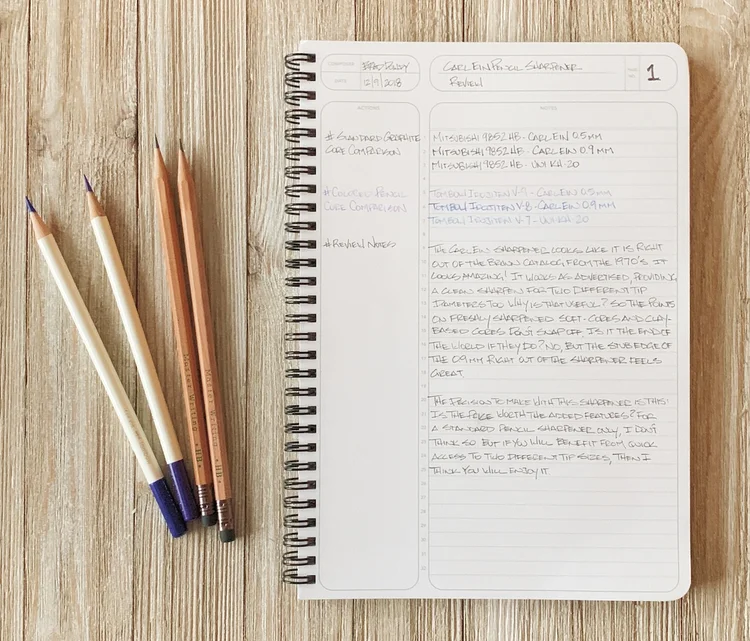 COMPOSER BRAD DOWDY
DATE 12/9/2018
CARL EIN PENCIL SHARPENER
REVIEW
PAGE NO. 1
ACTIONS
NOTES
# STANDARD GRAPHITE
CORE COMPARISON
MITSUBISHI 9852 HB - CARL EIN 0.5 MM
MITSUBISHI 9852 HB - CARL EIN 0.9 MM
MITSUBISHI 9852 HB - UNI KH-20
# COLORED PENCIL
CORE COMPARISON
TOMBOW IROJITEN V-9 - CARL EIN 0.5 MM
TOMBOW IROJITEN V-8 - CARL EIN 0.9 MM
TOMBOW IROJITEN V-7 - UNI KH-20
# REVIEW NOTES
THE CARL EIN SHARPENER LOOKS LIKE IT IS RIGHT
OUT OF THE BRAUN CATALOG FROM THE 1970'S. IT
LOOKS AMAZING! IT WORKS AS ADVERTISED, PROVIDING
A CLEAN SHARPEN FOR TWO DIFFERENT TIP
DIAMETERS TOO. WHY IS THAT USEFUL? SO THE POINTS
ON FRESHLY SHARPENED SOFT-CORES AND CLAY-
BASED CORES DON'T SNAP OFF. IS IT THE END OF
THE WORLD IF THEY DO? NO, BUT THE STUB EDGE OF
THE 0.9 MM RIGHT OUT OF THE SHARPENER FEELS
GREAT.
THE DECISION TO MAKE WITH THIS SHARPENER IS THIS:
IS THE PRICE WORTH THE ADDED FEATURES? FOR
A STANDARD PENCIL SHARPENER ONLY, I DON'T
THINK SO. BUT IF YOU WILL BENEFIT FROM QUICK
ACCESS TO TWO DIFFERENT TIP SIZES, THEN I
THINK YOU WILL ENJOY IT.
Master Writing • HB •
Master Writing • HB •